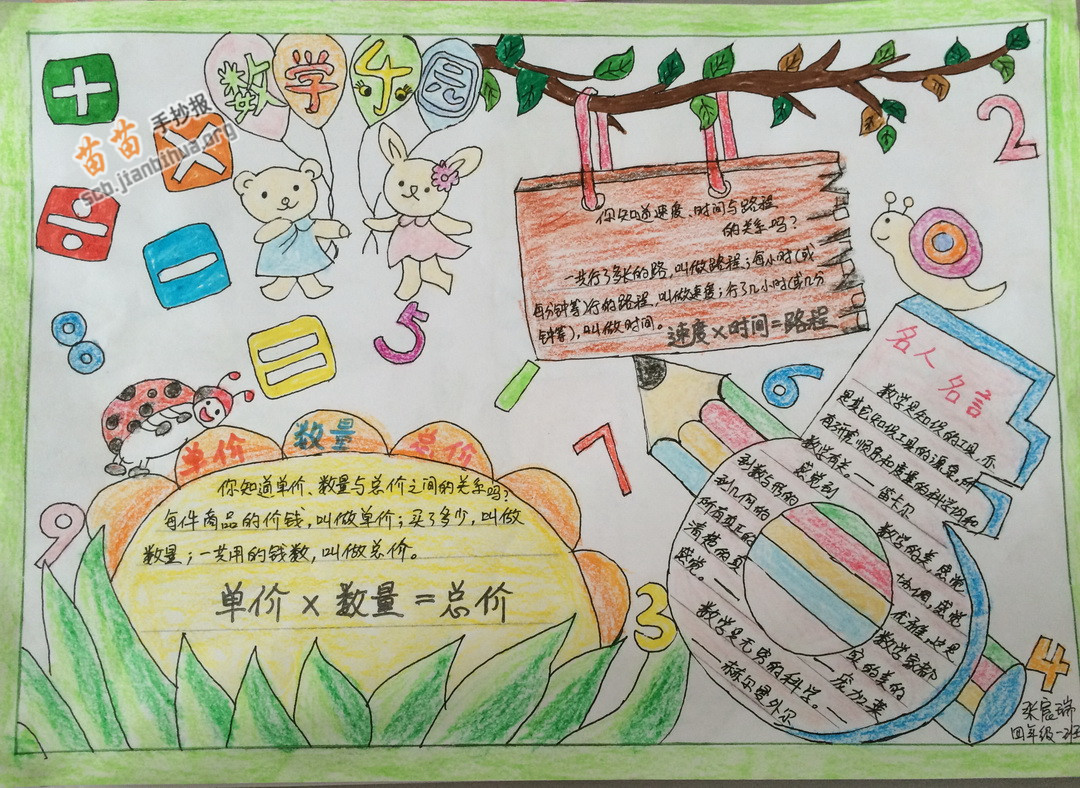 数学乐园
苗苗手抄报
scb.jianbihua.org
+
×
÷
−
=
2
8
5
1
6
7
9
3
4
你知道速度、时间与路程
的关系吗?
一共行了多长的路,叫做路程;每小时(或
每分钟等)行的路程,叫做速度;行了几小时(或几分
钟等),叫做时间。
速度×时间=路程
单价 数量 总价
你知道单价、数量与总价之间的关系吗?
每件商品的价钱,叫做单价;买了多少,叫做
数量;一共用的钱数,叫做总价。
单价×数量=总价
名人
名言
数学是知识的工具,亦
是其它知识工具的源泉,所
有研究顺序和度量的科学均和
数学有关。——笛卡尔
感觉到数学的美 感觉
到数与形的协调,感觉
到几何的优雅,这是
所有真正的数学家都
清楚的真实的美的
感觉。——庞加莱
数学是无穷的科学。——
赫尔曼外尔
四年级一班